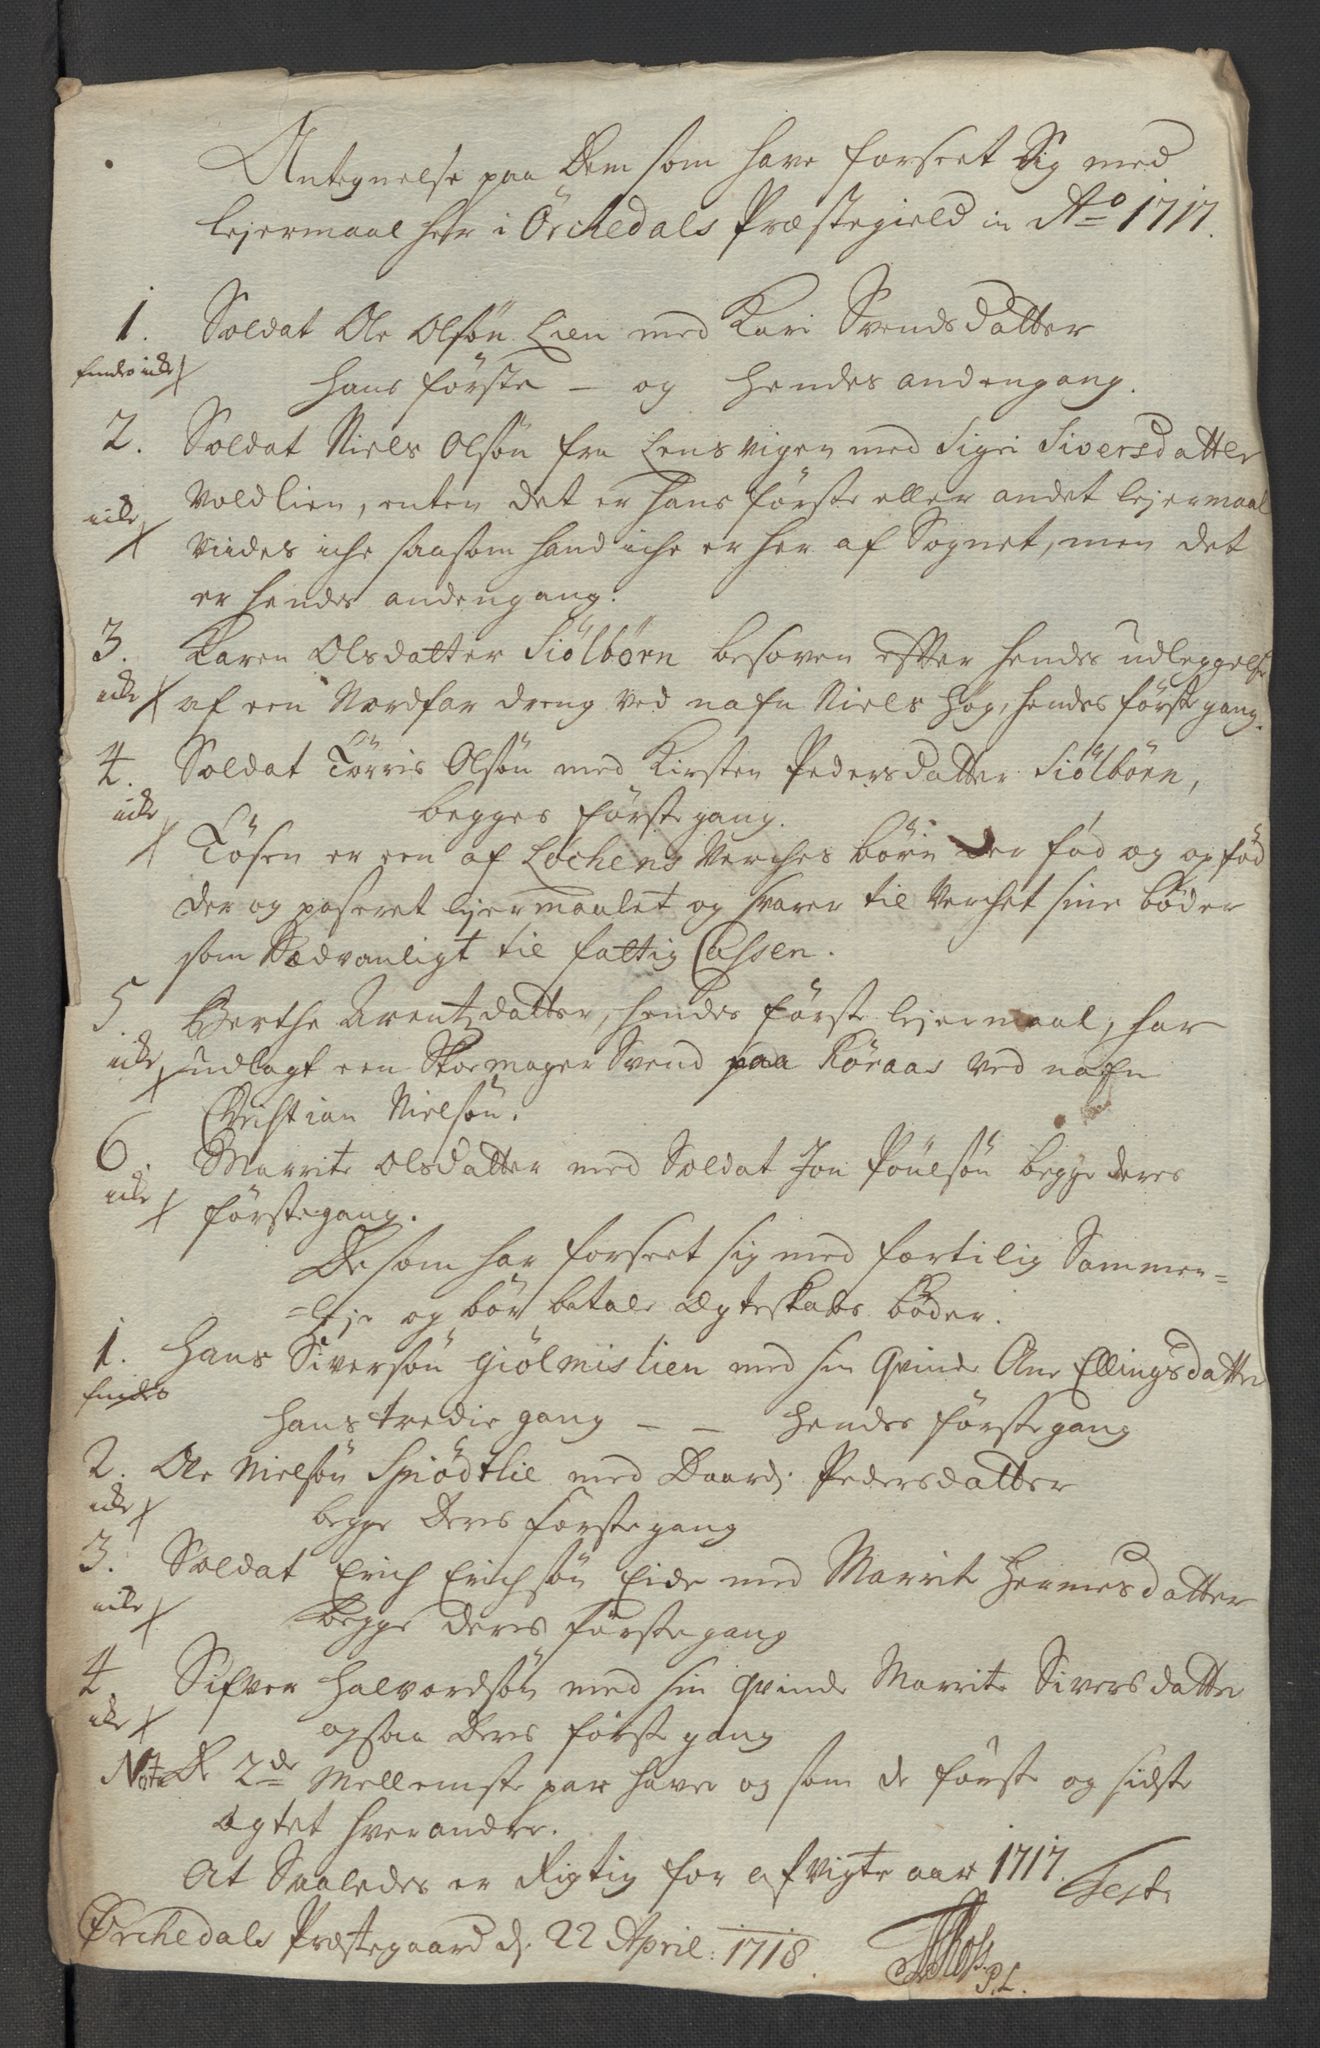 Antegnelse paa Dem som have forseet Sig med
lejermaal her i Örchedals Præstegield in Ao 1717.
1. Soldat Ole Olsön Lien med Kari Svendsdatter
findes icke
hans förste – og hendes andengang.
2. Soldat Niels Olsön fra Lensvigen med Sigri Siversdatter
Voldlien, enten det er hans förste eller andet lejermaal
icke
viides iche saasom hand iche er her af Sognet, men det
er hendes andengang.
3. Karen Olsdatter Siölbörn besoven efter hendes udleggelse
icke
af een Nordfar dreng ved nafn Niels Høg, hendes förste gang.
4. Soldat Törris Olsön med Kirsten Pedersdatter Siölbörn,
icke
begges förste gang.
Tösen er een af Løchens Verches börn der fød og opfød
der og paseret lejermaalet og svarer til Verchet sine bøder
som Sædvanligt til fattig Cassen.
5. Berthe Arentzdatter, hendes förste lejermaal, har
icke
udlagt een Skoemager Svend paa Röraas ved nafn
Christian Nielsön.
6. Marrite Olsdatter med Soldat Jon Poulsön begge deres
icke
förstegang.
De som har forseet sig med fortilig Sammen=
=leje og bör betale Ægteskabs bøder.
1. Hans Siversön Giölmislien med sin Qvinde Ane Ellingsdatter
findes
hans tredie gang – – hendes förste gang
2. Ole Nielsön Spiödtlie med Baard: Pedersdatter
icke
begge deres förste gang
3. Soldat Erich Erichsön Eide med Marrit Hermesdatter
icke
begge deres förste gang
4. Sifver Halvordsön med sin qvinde Marrite Siversdatter
icke
ogsaa deres förste gang
Nota De 2de Mellemste par haver og som de förste og sidste
ægtet hverandre.
At Saaledes er Rigtig for afvigte aar 1717. Teste
Örchedals Præstegaard d: 22 April: 1718.
P.L.